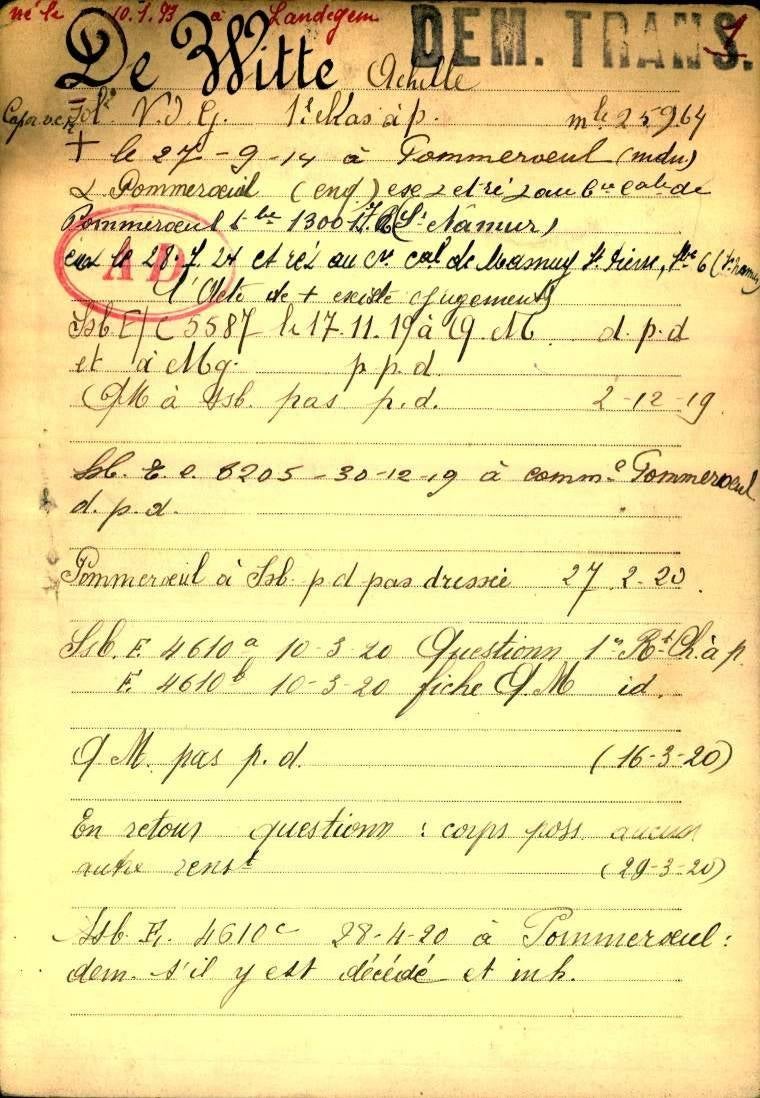 né le 10.1.93 à Landegem
DEM. TRANS. 1
De Witte Achille
Sol. V.D.G. 1r à p. mle 25964
+ le 27-9-14 à Pommeroeul (mdn)
Pommeroeul (eng) ex et ré au de
Pommeroeul tbe 1300 (St Namur)
AD
le 28.7.24 et ré au cal de Masnuy St Pierre, tbe 6
l'Acte de + existe (jugement)
Ssb. E/C 5587 le 17.11.19 à Q.M. d.p.d
et à Mg. p p.d.
QM à Ssb. pas p.d. 2-12-19
Ssb. E. e. 6205 - 30-12-19 à comme Pommeroeul
d.p.d.
Pommeroeul à Ssb. p d pas dressée 27 2-20.
Ssb. E. 4610a 10-3-20 Questionn 1r Rt Ch. à p.
E. 4610b 10-3-20 fiche Q.M id.
Q M. pas p.d. (16-3-20)
En retour questionn : corps poss. aucun
autre renst (29-3-20)
Ssb. E. 4610c 28-4-20 à Pommeroeul :
dem. s'il y est décédé et inh.